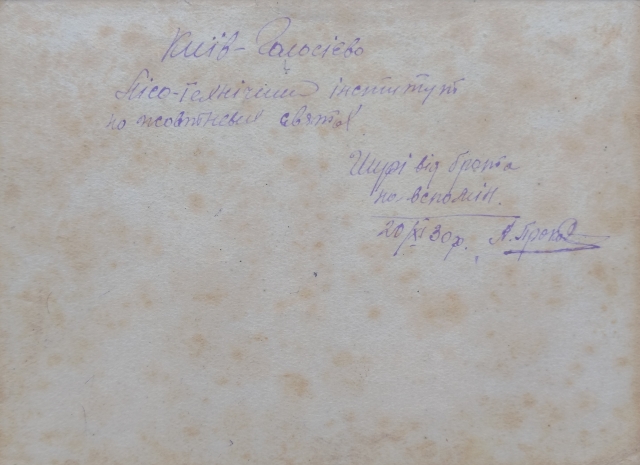 Київ-Голосієво
Лісо-технічний інститут
на жовтневих святах
Шурі від брата
на вспомін.
20/XI 30р.